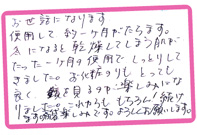 お世話になります
使用して約一ヶ月がたちます。
冬になると乾燥してしまう肌が
たった一ヶ月の使用でしっとりして
きました。お化粧のりもとっても
良く、鏡を見るのが楽しみにな
りました。これからももちろん続け
ます 楽しみです。よろしくお願いします。